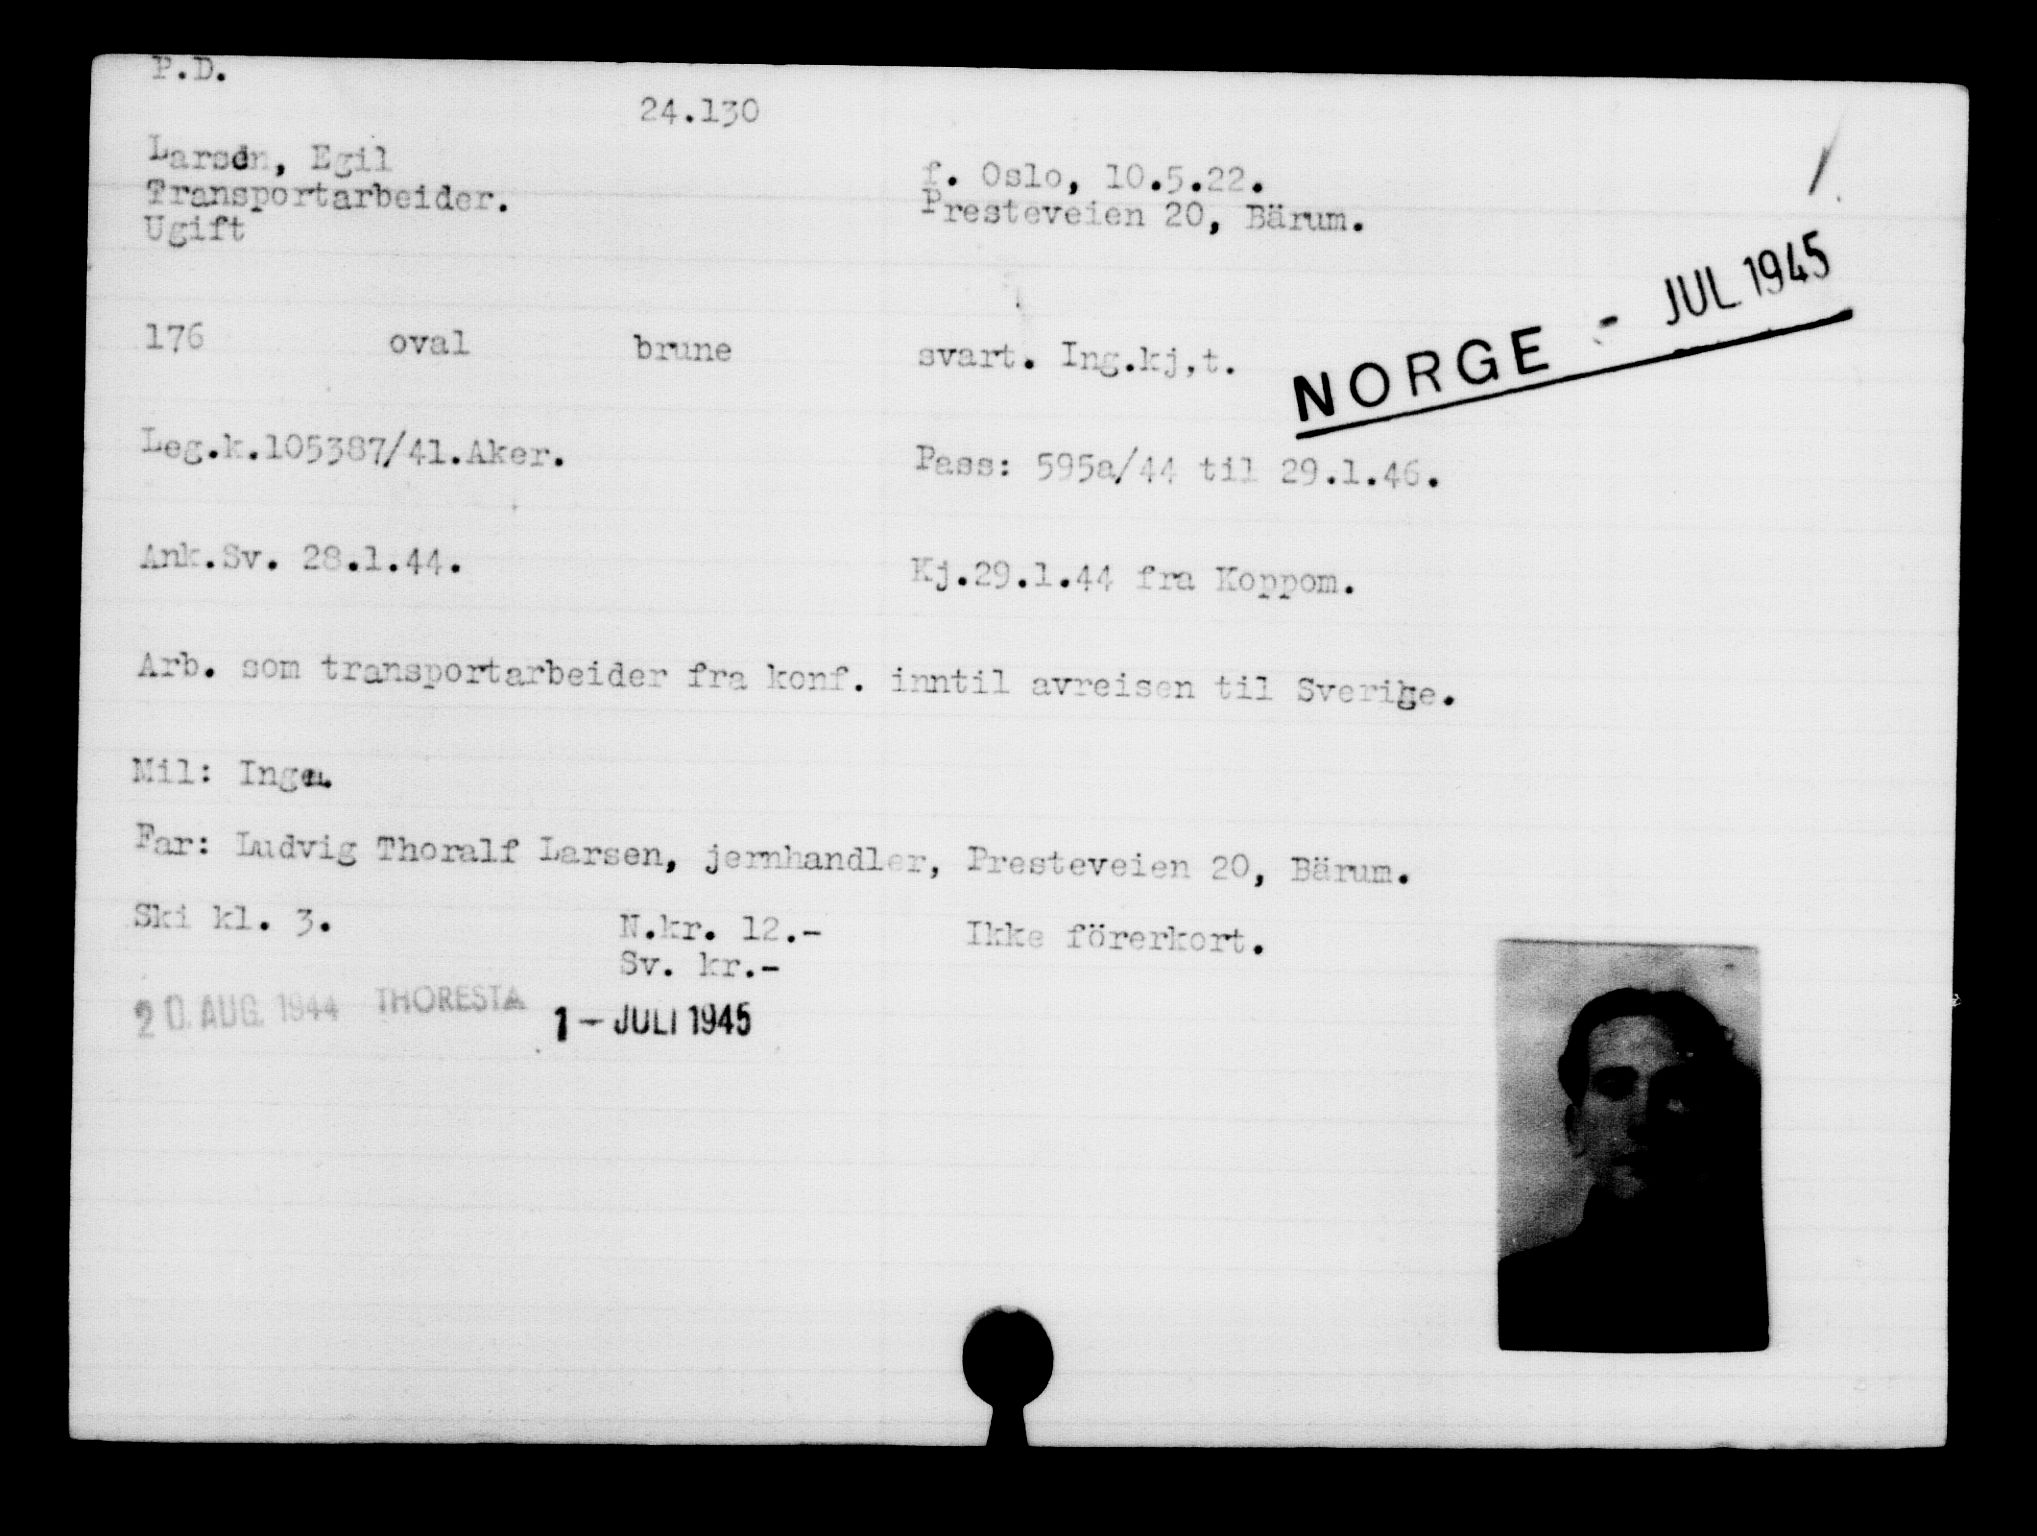 P.D.
24.130
Larsen, Egil
f. Oslo, 10.5.22.
Transportarbeider.
Presteveien 20, Bärum.
Ugift
NORGE - JUL 1945
176 oval brune svart. Ing.kj,t.
Leg.k.105387/41.Aker.
Pass: 595a/44 til 29.1.46.
Ank.Sv. 28.1.44.
Kj.29.1.44 fra Koppom.
Arb. som transportarbeider fra konf. inntil avreisen til Sverige.
Mil: Ingen.
Far: Ludvig Thoralf Larsen, jernhandler, Presteveien 20, Bärum.
Ski kl. 3. N.kr. 12.- Ikke förerkort.
Sv. kr.-
20. AUG. 1944 THORESTA 1 - JULI 1945